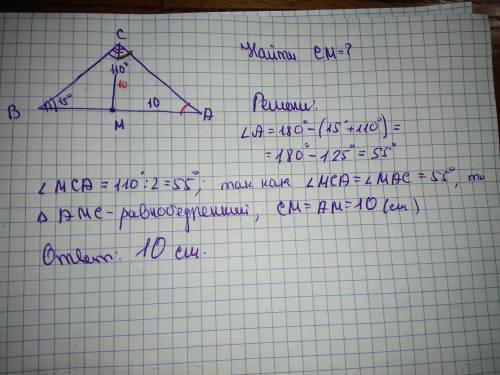 C
Найти CM=?
110°
10
B
15°
10
A
M
Решени:
∠A = 180° - (15° + 110°) =
= 180° - 125° = 55°
∠MCA = 110° : 2 = 55°; так как ∠MCA = ∠MAC = 55°, то
Δ AMC - равнобедренний, CM = AM = 10 (см)
Ответ: 10 см.